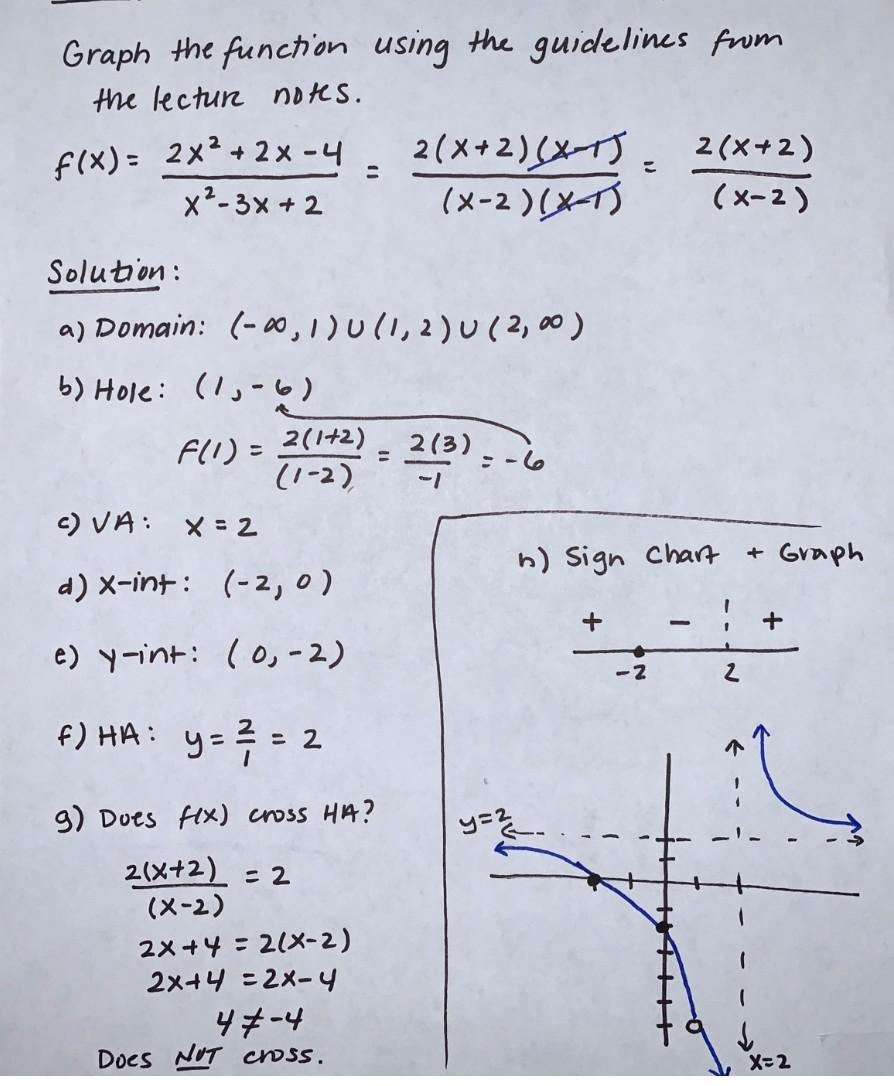 Graph the function using the guidelines from
the lecture notes.
f(x) = 2x² + 2x - 4 / x² - 3x + 2 = 2(x+2)(x-1) / (x-2)(x-1) = 2(x+2) / (x-2)
Solution:
a) Domain: (-∞, 1) ∪ (1, 2) ∪ (2, ∞)
b) Hole: (1, -6)
f(1) = 2(1+2) / (1-2) = 2(3) / -1 = -6
c) VA: x = 2
d) x-int: (-2, 0)
e) y-int: (0, -2)
f) HA: y = 2/1 = 2
g) Does f(x) cross HA?
2(x+2) / (x-2) = 2
2x+4 = 2(x-2)
2x+4 = 2x-4
4 ≠ -4
Does NOT cross.
h) Sign Chart + Graph
+ - +
-2 2
y=2
x=2